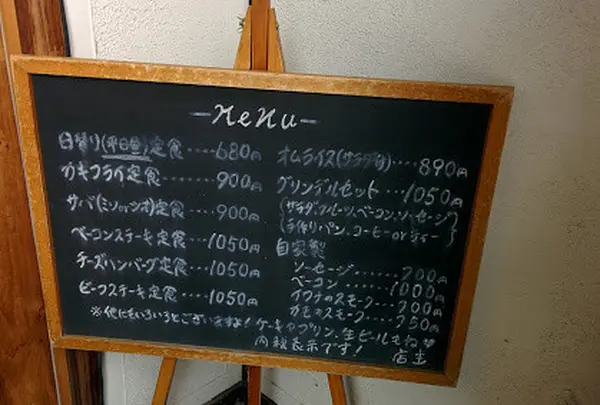 MeNu
日替り(平日昼)定食････680円
カキフライ定食････900円
サバ(ミソorシオ)定食････900円
ベーコンステーキ定食････1050円
チーズハンバーグ定食････1050円
ビーフステーキ定食････1050円
オムライス(サラダ付)････890円
グリンデルセット････1050円
(サラダ、フルーツ、ベーコン、ソーセージ
手作りパン、コーヒーorティー)
自家製
ソーセージ･････700円
ベーコン･････1000円
イワナのスモーク････900円
カモのスモーク････750円
※他にもいろいろとございますよ!ケーキ、プリン、生ビールもね♥
内税表示です! 店主